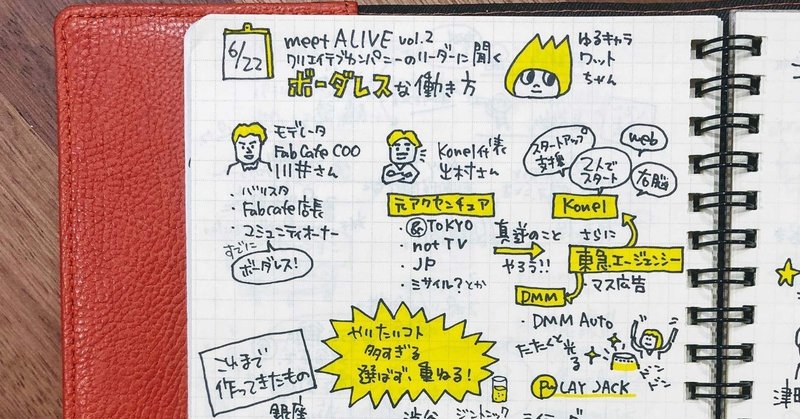 6/22
meet ALIVE vol.2
クリエイティブカンパニーのリーダーに聞く
ボーダレスな働き方
ゆるキャラ
ワット
ちゃん
モデレータ
FabCafe COO
川井さん
・バリスタ
・Fabcafe店長
・コミュニティオーナー
すでに
ボーダレス!
Konel代表
出村さん
元アクセンチュア
・&TOKYO
・notTV
・JP
・ミサイル?とか
真逆のこと
やろう!!
スタートアップ
支援
2人で
スタート
web
右脳
Konel
さらに
東急エージェンシー
マス広告
DMM
・DMM Auto
たたくと光る
ドン
ドン
PLAY JACK
これまで
作ってきたもの
やりたいコト
多すぎる
選ばず、重ねる!
銀座
渋谷
ジントニック
津田